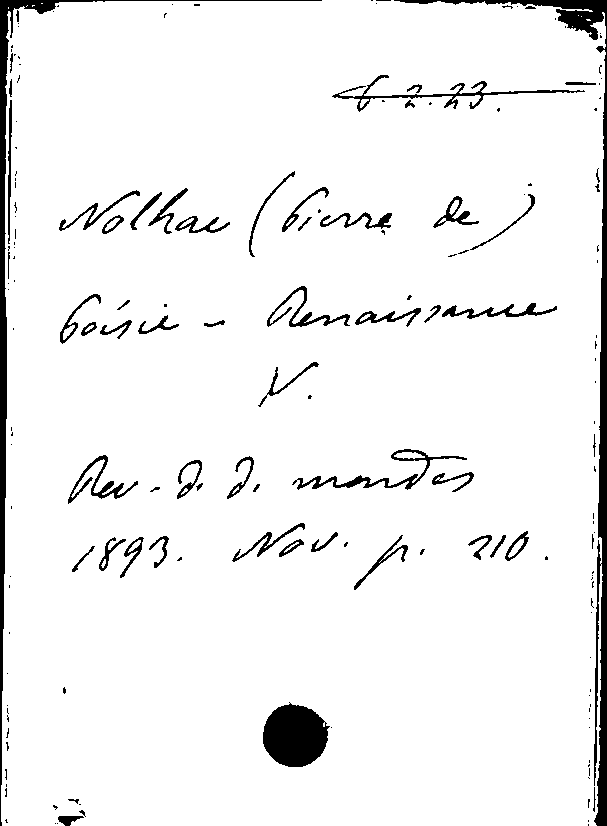 6.2.23.
Nolhac (Pierre de)
Poésie - Renaissance
V.
Rev. d. d. mondes
1893. Nov. p. 210.